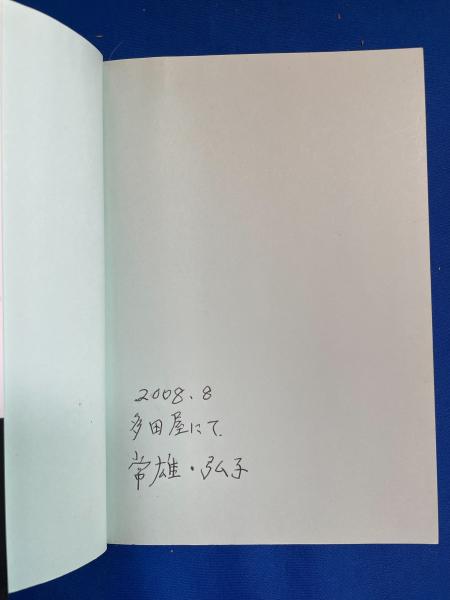 2008.8
多田屋にて
常雄・弘子